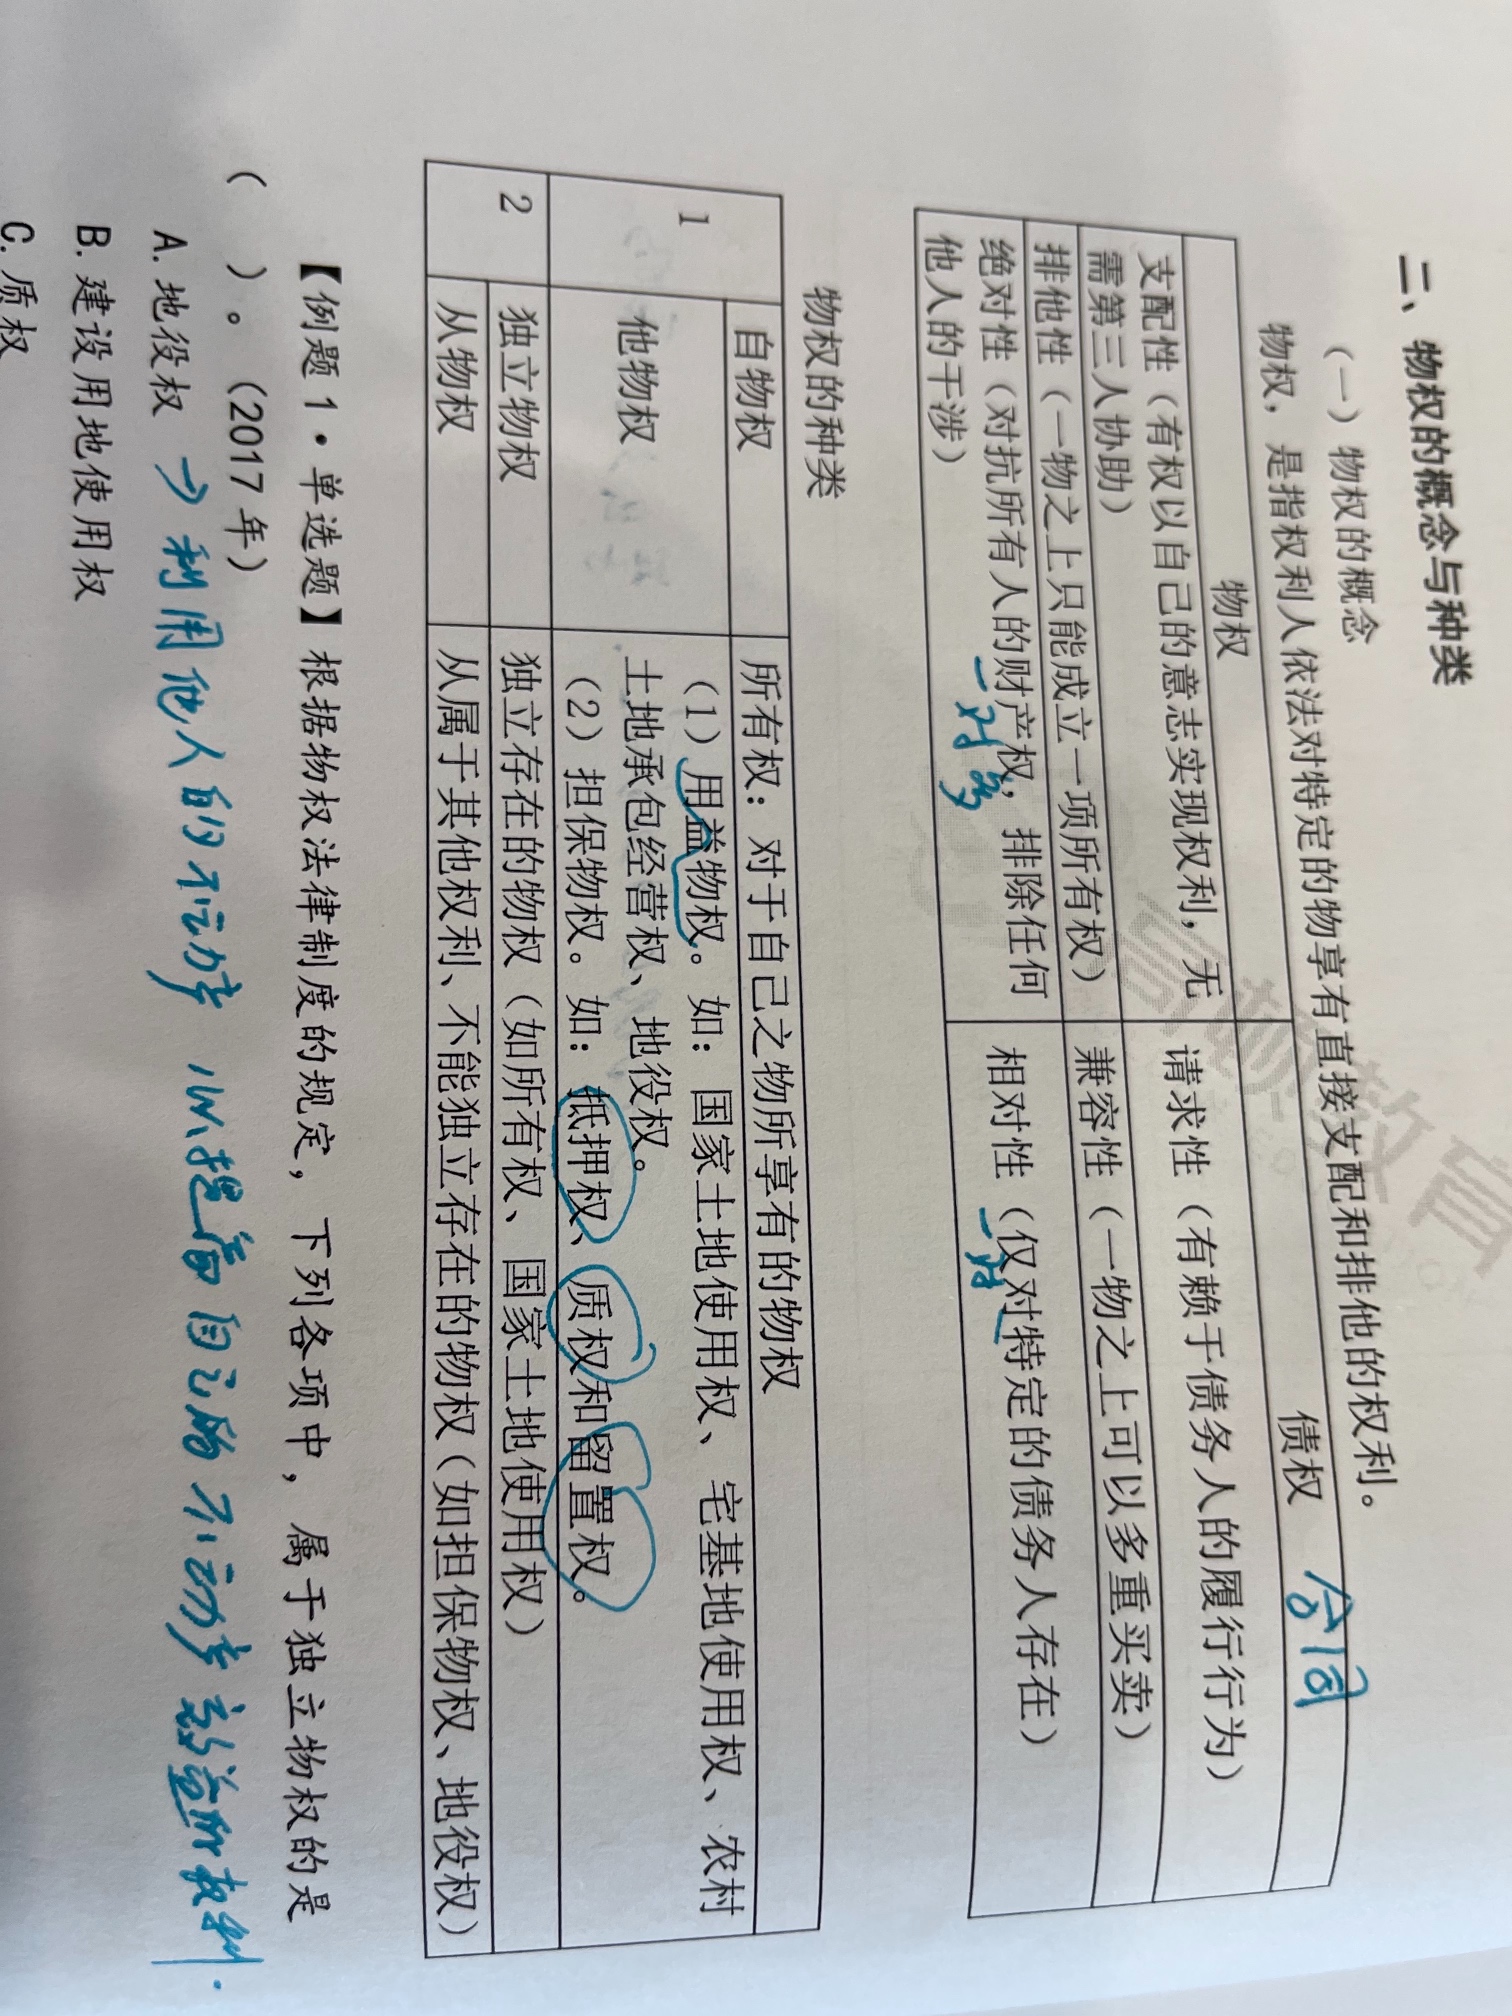 二、物权的概念与种类
（一）物权的概念
物权，是指权利人依法对特定的物享有直接支配和排他的权利。
物权 债权 合同
支配性（有权以自己的意志实现权利，无需第三人协助） 请求性（有赖于债务人的履行行为）
排他性（一物之上只能成立一项所有权） 兼容性（一物之上可以多重买卖）
绝对性（对抗所有人的财产权，排除任何他人的干涉） 相对性（仅对特定的债务人存在）
一对多
物权的种类
1 自物权 所有权：对于自己之物所享有的物权
他物权 （1）用益物权。如：国家土地使用权、宅基地使用权、农村土地承包经营权、地役权。
（2）担保物权。如：抵押权、质权和留置权。
2 独立物权 独立存在的物权（如所有权、国家土地使用权）
从物权 从属于其他权利、不能独立存在的物权（如担保物权、地役权）
【例题1·单选题】根据物权法律制度的规定，下列各项中，属于独立物权的是
（ ）。（2017年）
A. 地役权 → 利用他人的不动产 以提高自己的不动产效益的权利.
B. 建设用地使用权
C. 质权
高顿教育